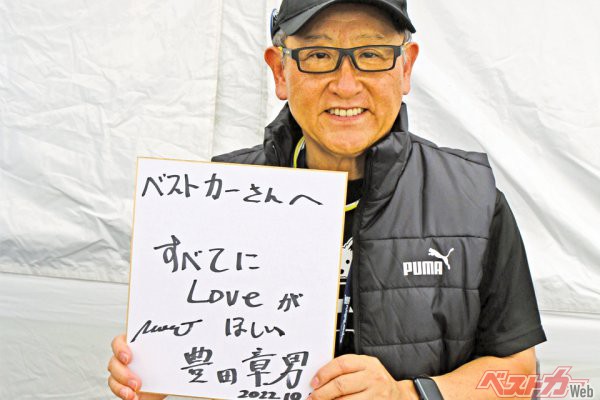 ベストカーさんへ
すべてに
Loveが
ほしい
豊田章男
2022.10
PUMA
ベストカーWeb